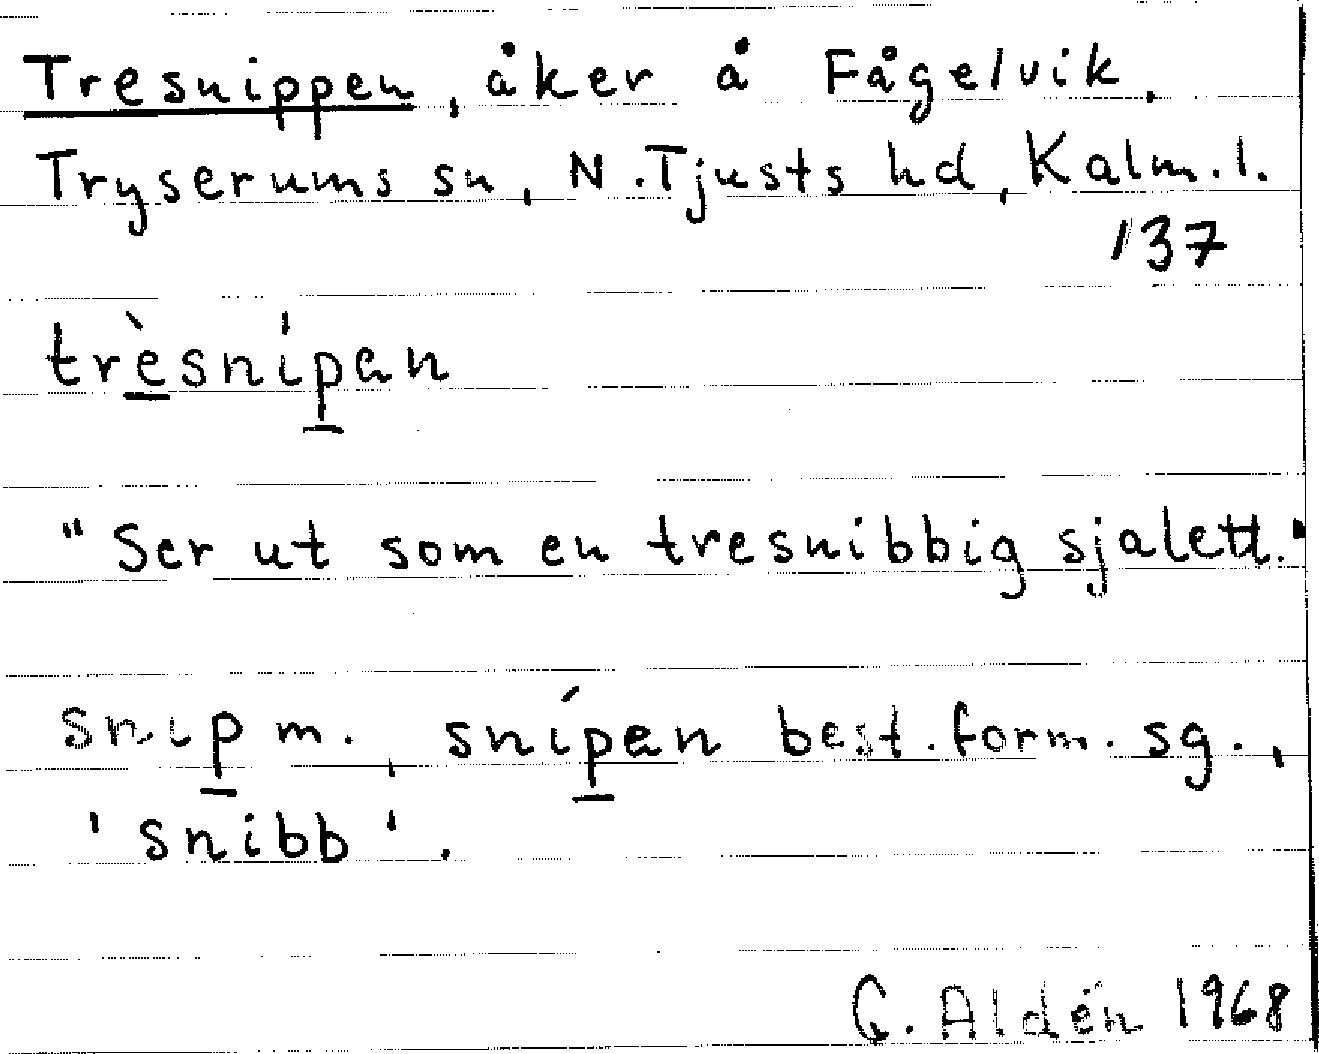 Tresnippen, åker å Fågelvik,
Tryserums sn, N. Tjusts hd, Kalm. l.
137
trèsnípan
"Ser ut som en tresnibbig sjalett."
snip m., snípan best. form. sg.,
'snibb'.
G. Aldén 1968